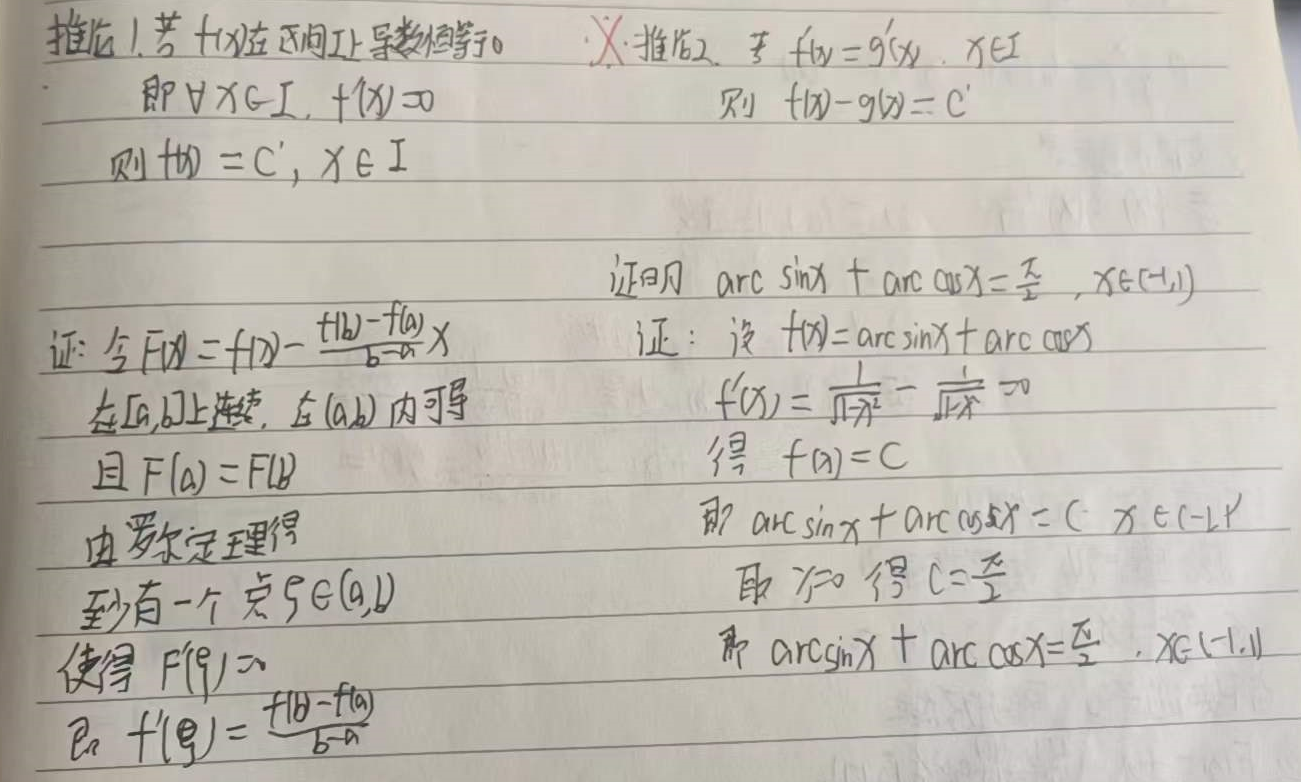 推论1.若 f(x)在区间I上导数恒等于0
即∀x∈I, f'(x)=0
则 f(x) = C, x∈I
※ 推论2. 若 f'(x) = g'(x), x∈I
则 f(x)-g(x) = C
证: 令 F(x) = f(x) - \frac{f(b)-f(a)}{b-a}x
在[a,b]上连续, 在(a,b)内可导
且 F(a) = F(b)
由罗尔定理得
至少有一个点ξ∈(a,b)
使得 F'(ξ)=0
即 f'(ξ) = \frac{f(b)-f(a)}{b-a}
证明 arc sinx + arc cosx = \frac{π}{2}, x∈(-1,1)
证: 设 f(x) = arc sinx + arc cosx
f'(x) = \frac{1}{\sqrt{1-x^2}} - \frac{1}{\sqrt{1-x^2}} = 0
得 f(x) = C
即 arc sinx + arc cosx = C x∈(-1,1)
取 x=0 得 C = \frac{π}{2}
即 arcsinx + arc cosx = \frac{π}{2}, x∈(-1,1)